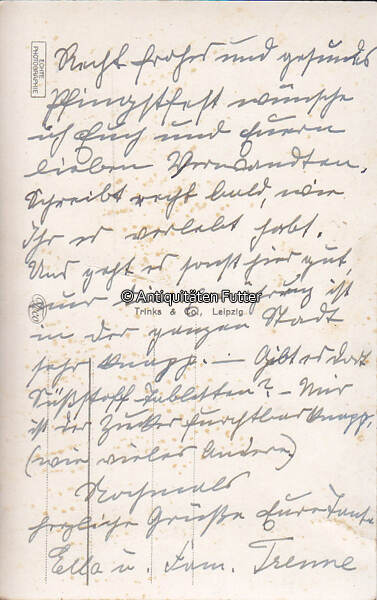 ECHTE
PHOTOGRAPHIE
Recht frohes und gesundes
Pfingstfest wünsche
ich Euch und Euern
lieben Verwandten.
Schreibt recht bald, wie
Ihr es verlebt habt.
Uns geht es sonst hier gut,
nur ist
© Antiquitäten Futter
Trinks & Co., Leipzig
in der ganzen Stadt
sehr knapp. — Gibt es dort
Süßstoff Tabletten? — Nur
ist der Zucker furchtbar knapp,
(wie vieles Andere)
Nochmals
herzliche Grüße Eure Tante
Ella u. Fam. Trenne